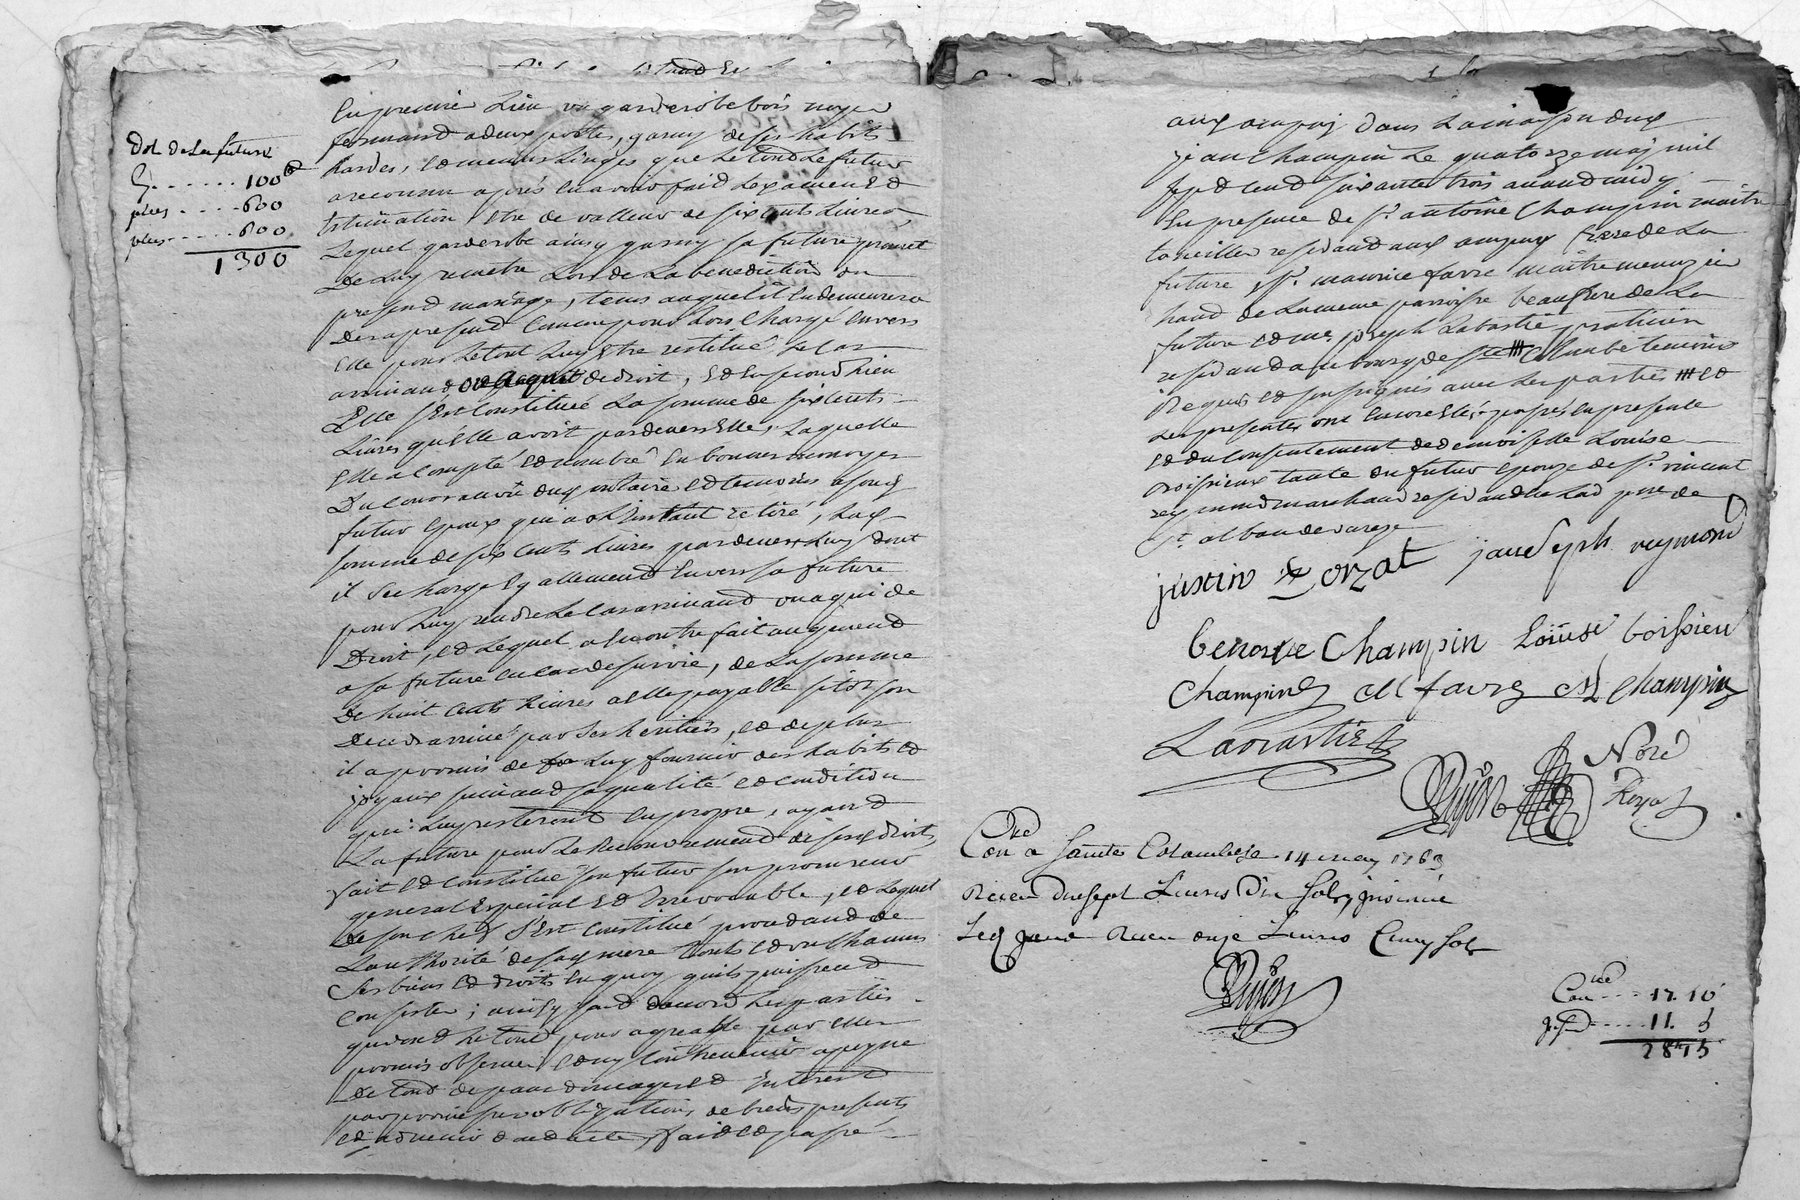 Dot de la future
Cy ...... 100
plus ..... 600
plus ..... 600
1300
En premier Lieu un garderobe bois noyer
fermant a deux portes, garny de ses habits
hardes, et menus Linges que Le tout Le futur
a reconnu après en avoir fait L'examen Et
Estimation Etre de valleur de six cents Livres,
Lequel garderobe ainsy garny sa future promet
De Luy remettre Lors de La benediction du
present mariage, tems auquel il En demeurera
Des a present Comme pour Lors Chargé Envers
Elle pour Le tout Luy Etre restitué Le cas
arrivant de droit, Et En second Lieu
Elle s'Est Constituée La somme de six cents
Livres qu'Elle avoit pardevers Elle, Laquelle
Elle a Compté et nombré En bonnes monoyes
Du cours au vû du notaire et temoins a son
futur Epoux qui a a L'instant retiré, La
somme de six Cents Livres pardevers Luy dont
il se charge Egallement Envers sa future
pour Luy rendre Le cas arrivant ou a qui de
Droit, et Lequel a Encontre fait augment
a sa future En cas de survie, de La somme
De huit Cents Livres a Elle payable sitot son
Deceds arrivé par ses heritiers, et de plus
il a promis de Luy fournir des habits et
joyaux suivant sa qualité et condition
qui Luy resteront En propre, ayant
La future pour Le Recouvrement de ses droits
fait et constitué son futur son procureur
general Especial Et Irrevocable, et Lequel
de son chef s'Est Constitué procedant de
L'authorité de sa mere touts et un Chacuns
ses biens et droits En quoy quils puissent
Consister; ainsy fait d'accord Les parties
qui ont Le tout pour agreable par Elles
promis observer et ny Contrevenir a peyne
De tout depans domages et Interest
par promesse obligations de biens presents
et advenir dont acte, fait et passé
aux ampuy dans La maison du
jean Champin Le quatorze may mil
sept cent soixante trois avant midy
En presence de sr. antoine Champin maitre
tonellier residant aux ampuy frere de La
future sr. maurice favre maitre menuzier
haut de La meme parroisse beaufrere de La
future et me. joseph Labastie praticien
residant au bourg de ste Colombe temoins
Requis et soussignés avec Les parties et
Les presentes ont Encore Eté passés En presence
et du Consentement de demoiselle Louise
Boissieux tante du futur Epouze de sr. vincent
reymond marchand residant
st. alban de vareze
justin Dorzat jauseph reymond
benoite Champin Loüise boissieu
Champin M favre M Champin
Labastie
Guyot Noré
Royal
Con.lé a Sainte Colombe le 14 may 1763
Receu dix sept Livres dix sols,
Receu onze Livres Cinq sols
Guyot
Con.... 17. 10
..... 11. 5
28 15